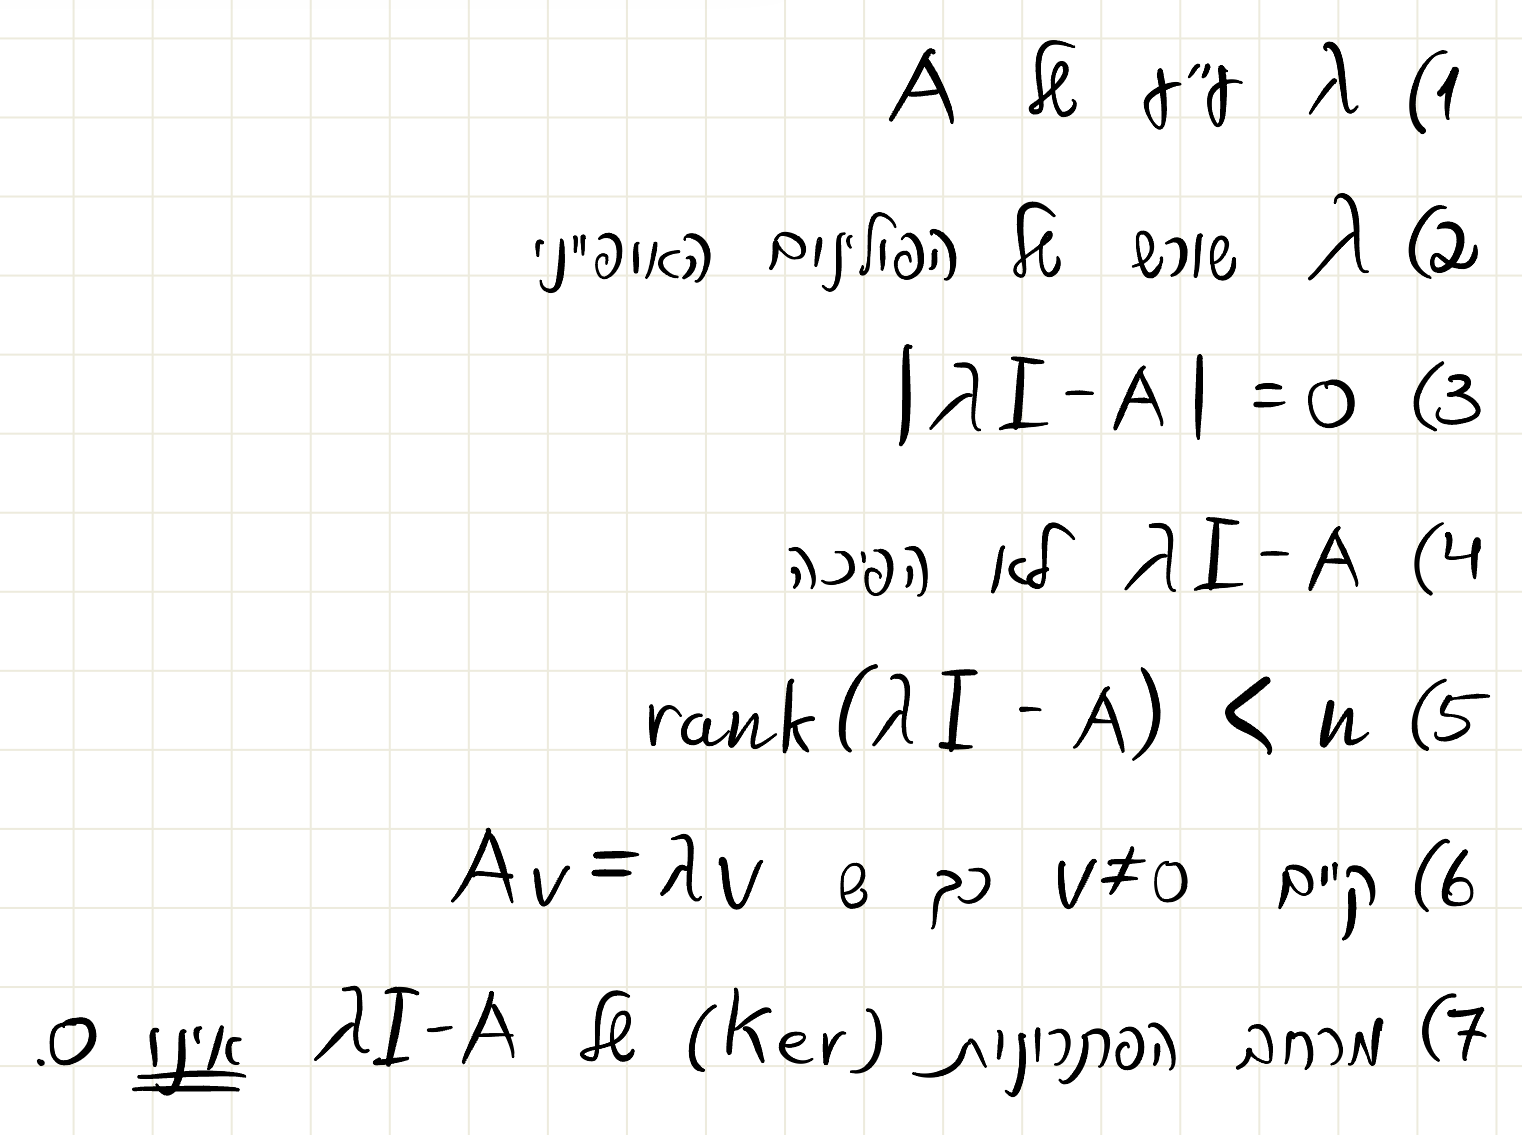 1) λ ע"ע של A
2) λ שורש של הפולינום האופייני
3) |λI-A| = 0
4) λI-A לא הפיכה
5) rank(λI-A) < n
6) קיים v≠0 כך ש Av=λv
7) מרחב הפתרונות (Ker) של λI-A אינו 0.